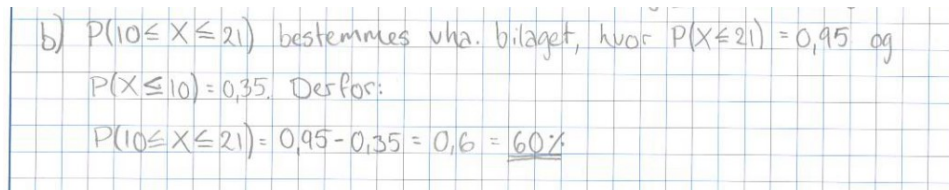 b) P(10≤ X ≤ 21) bestemmes vha. bilaget, hvor P(X≤21) = 0,95 og
P(X≤10) = 0,35. Derfor:
P(10≤ X ≤ 21) = 0,95 - 0,35 = 0,6 = 60%